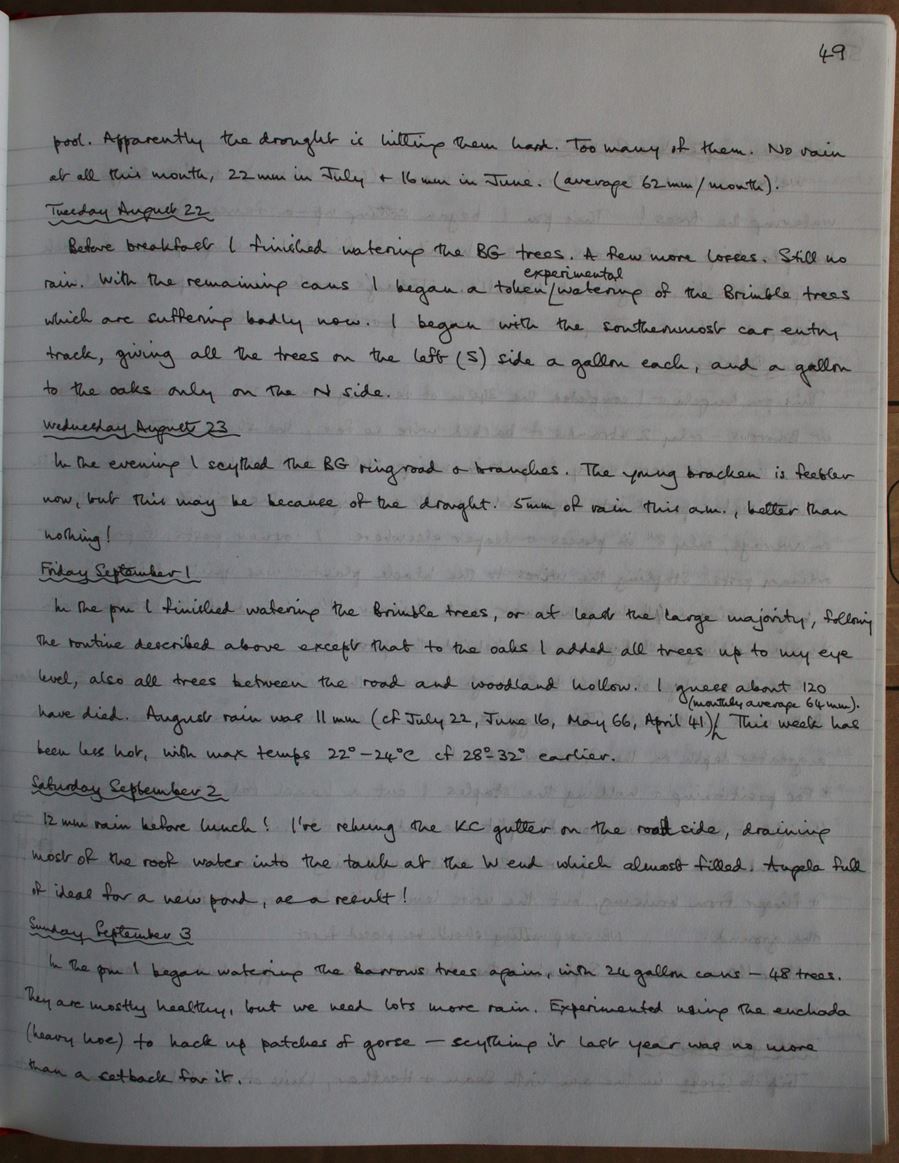 49
pool. Apparently the drought is hitting them hard. Too many of them. No rain
at all this month, 22mm in July + 16mm in June. (average 62mm/month).
Tuesday August 22
Before breakfast I finished watering the BG trees. A few more losses. Still no
experimental
rain. With the remaining cans I began a token watering of the Brimble trees
which are suffering badly now. I began with the southernmost car entry
track, giving all the trees on the left (S) side a gallon each, and a gallon
to the oaks only on the N side.
Wednesday August 23
In the evening I scythed the BG ringroad & branches. The young bracken is feebler
now, but this may be because of the drought. 5mm of rain this a.m., better than
nothing!
Friday September 1
In the pm I finished watering the Brimble trees, or at least the large majority, following
the routine described above except that to the oaks I added all trees up to my eye
level, also all trees between the road and woodland hollow. I guess about 120
(monthly average 64mm).
have died. August rain was 11mm (cf July 22, June 16, May 66, April 41) This week has
been less hot, with max temps 22°-24°C cf 28°-32° earlier.
Saturday September 2
12mm rain before lunch! I've rehung the KC gutter on the road side, draining
most of the roof water into the tank at the W end which almost filled. Angela full
of ideas for a new pond, as a result!
Sunday September 3
In the pm I began watering the Barrows trees again, with 24 gallon cans - 48 trees.
They are mostly healthy, but we need lots more rain. Experimented using the enchada
(heavy hoe) to hack up patches of gorse - scything it last year was no more
than a setback for it.